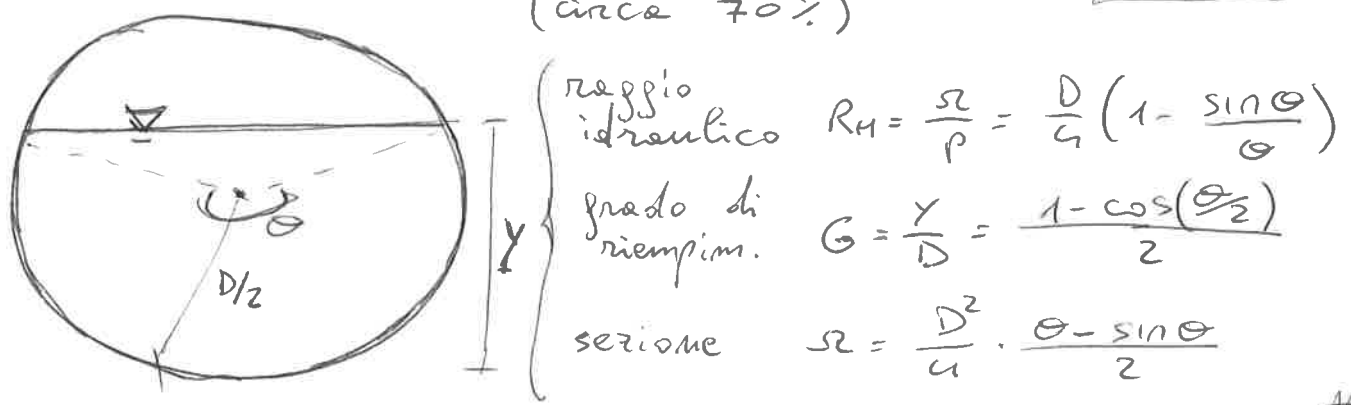 (circa 70%)
raggio
idraulico R_H = Ω/P = D/4 (1 - sinθ/θ)
grado di
riempim. G = Y/D = (1 - cos(θ/2))/2
sezione Ω = D²/4 · (θ - sinθ)/2
θ
D/2
Y